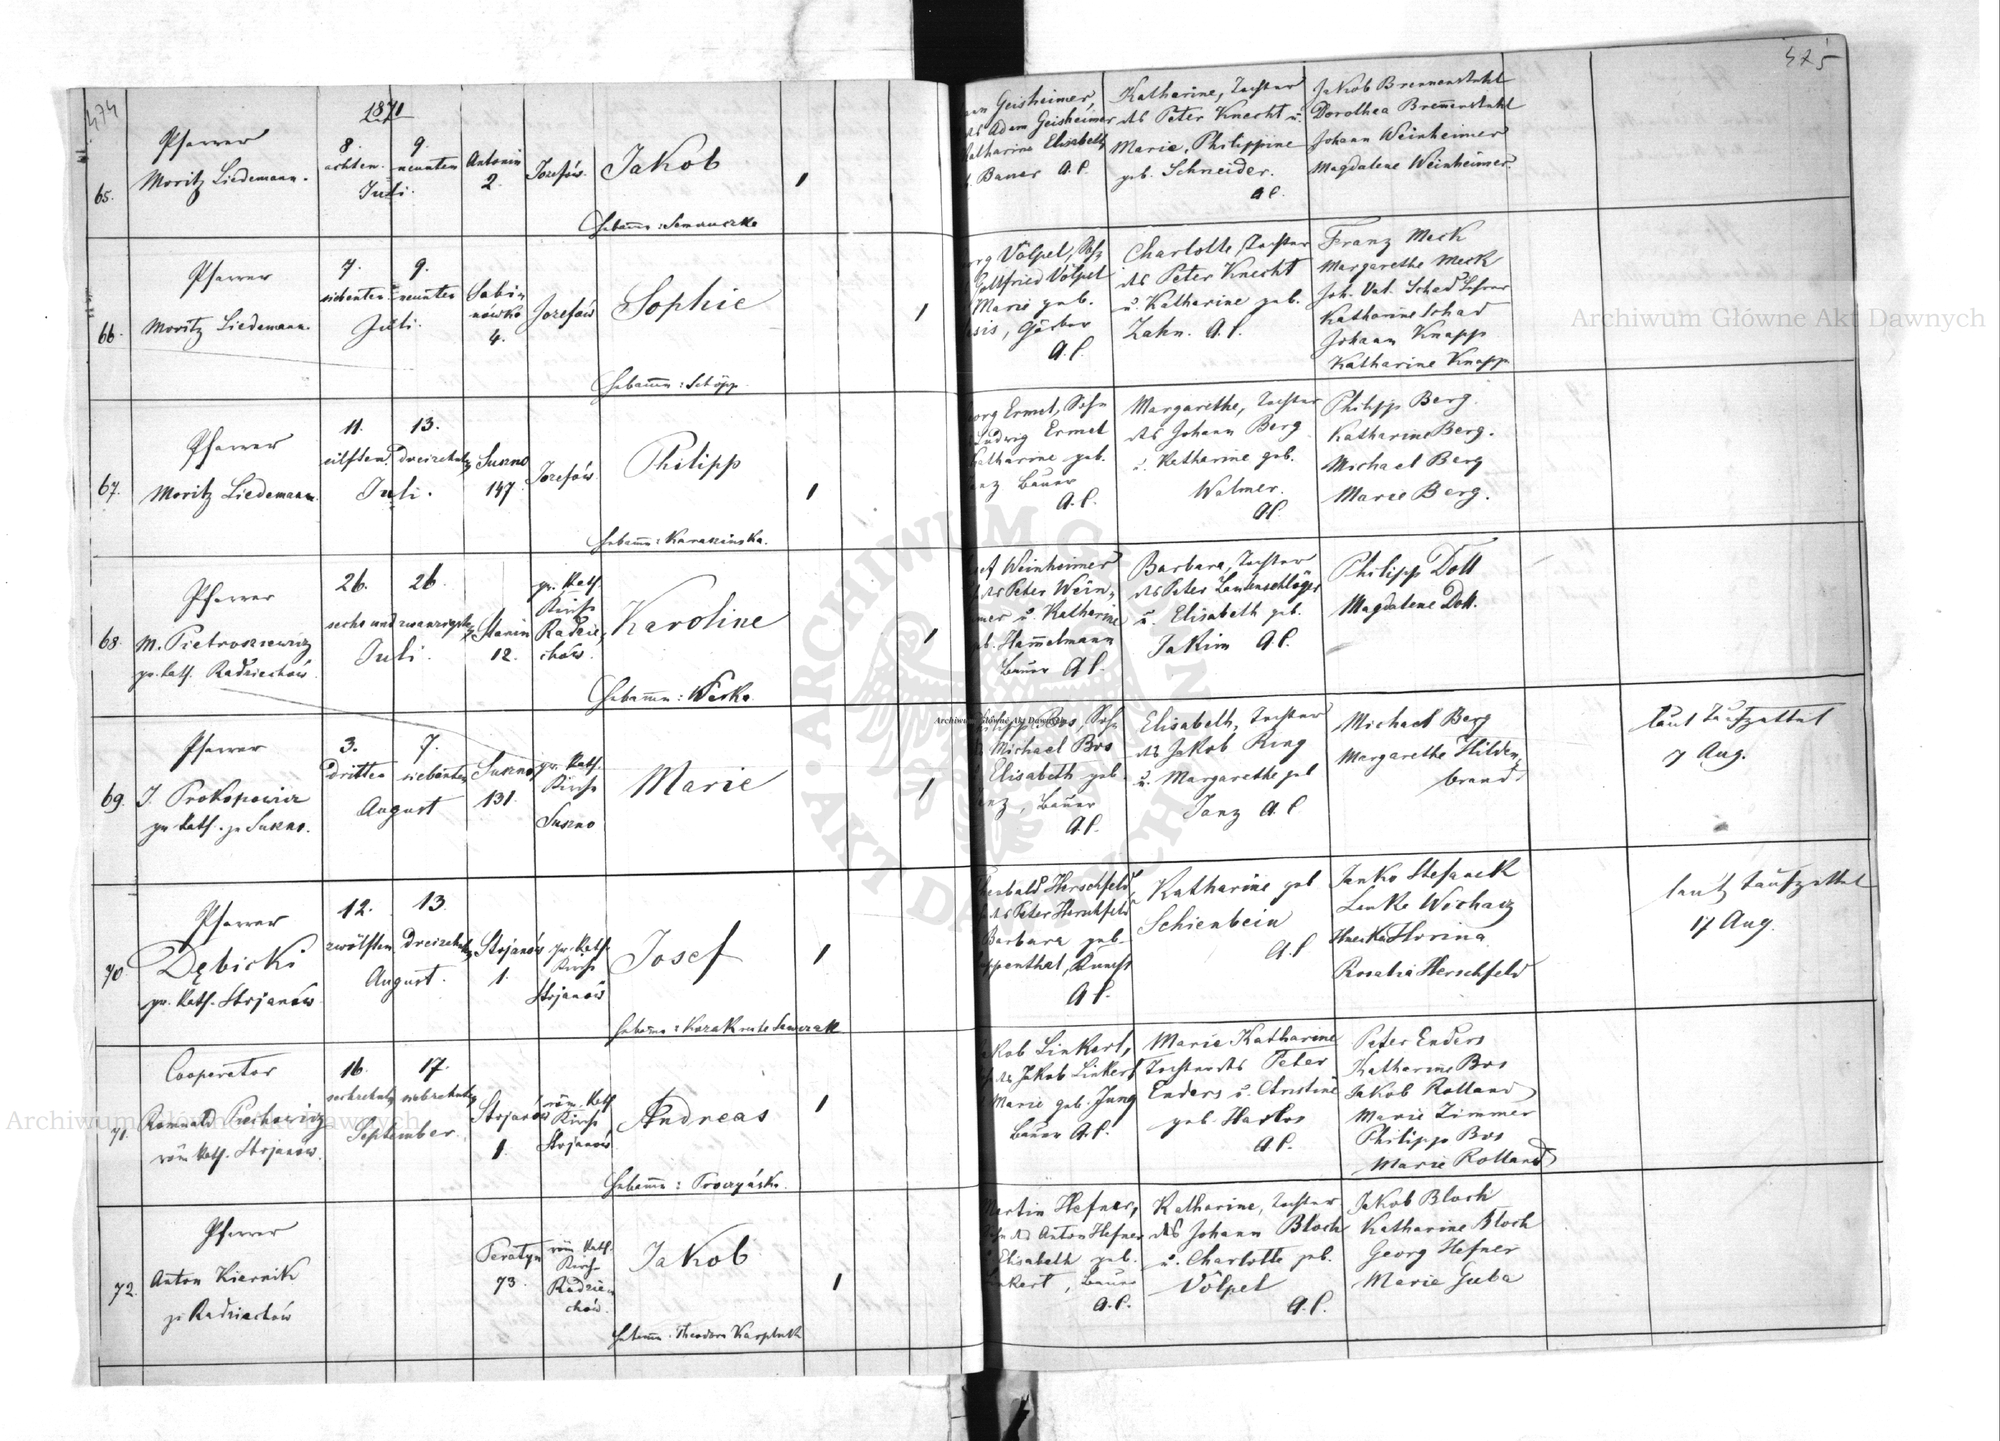 474
1871
Pfarrer
Moritz Liedemann.
65.
8. 9.
achten. neunten
Juli.
Antonin
2.
Josefów
Jakob
Hebamme: Semaruszka
Geisheimer,
des Adam Geisheimer
Katharina Elisabeth
Bauer A. C.
Katharine, Tochter
des Peter Knecht u.
Marie, Philippine
geb. Schneider.
A C.
Jakob Brennenstuhl
Dorothea Brennenstuhl
Johann Weinheimer
Magdalene Weinheimer.
475
Pfarrer
Moritz Liedemann.
66.
7. 9.
siebenten neunten
Juli.
Sabi-
nówka
4.
Josefów
Sophie
Hebamme: Schöpp.
Völpel, Sohn
Gottfried Völpel
Marie geb.
Gärber
A. C.
Charlotte, Tochter
des Peter Knecht
u. Katharine geb.
Zahn. A. C.
Franz Meck
Margarethe Meck
Joh. Val. Schad Lehrer
Katharine Schad
Johann Knapp
Katharine Knapp
Pfarrer
Moritz Liedemann.
67.
11. 13.
eilften. dreizehnten
Juli.
Suszno
147.
Josefów
Philipp
Hebamme: Karasinska.
Ermel, Sohn
Ludwig Ermel
Katharine geb.
Bauer
A. C.
Margarethe, Tochter
des Johann Berg
u. Katharine geb.
Walmer.
A C.
Philipp Berg.
Katharine Berg.
Michael Berg
Marie Berg.
Pfarrer
M. Pietrosiewicz
gr. kath. Radziechów.
68.
26. 26.
sechs und zwanzigsten
Juli.
Stanin
12.
gr. kath.
Kirche
Radzie-
chów.
Karoline
Hebamme: Waska.
Weinheimer
des Peter Wein-
mer u. Katharine
geb. Hammelmann
Bauer A C.
Barbara, Tochter
des Peter Lautenschläger
u. Elisabeth geb.
Jakim A C.
Philipp Doll
Magdalene Doll.
Pfarrer
J. Prokopowicz
gr. kath. zu Suszno.
69.
3. 7.
dritten siebenten
August
Suszno
131.
gr. kath.
Kirche
Suszno
Marie
Philipp Bos, Sohn
Michael Bos
Elisabeth geb.
Bauer
A C.
Elisabeth, Tochter
des Jakob Ring
u. Margarethe geb
Janz A. C.
Michael Berg
Margarethe Hilden-
brand
laut Taufzettel
7 Aug.
Pfarrer
Dębicki
gr. kath. Stojanów.
70.
12. 13.
zwölften. dreizehnten
August.
Stojanów
1.
gr. kath.
Kirche
Stojanów
Josef
Hebamme: Kozak recte Sawczak
Herschfeld
des Peter Herschfeld
Barbara geb.
A C.
Katharine geb
Schienbein
A C.
Janko Stefanek
Lenke Wichacz
Hnerka Horina
Rosalia Herschfeld
laut Taufzettel
17 Aug.
Cooperator
Romuald Piechowicz
röm kath. Stojanów.
71.
16. 17.
sechzehnten siebzehnten
September.
Stojanów
1.
röm. kath
Kirche
Stojanów
Andreas
Hebamme: Proczyńska.
Jakob Linkert,
des Jakob Linkert
Marie geb. Jung
Bauer A. C.
Marie Katharine
Tochter des Peter
Enders u. Christine
geb. Harlos
A. C.
Peter Enders
Katharine Bos
Jakob Rolland
Marie Zimmer
Philipp Bos
Marie Rolland
Pfarrer
Anton Kiernik
zu Radziechów
72.
Peratyn
73.
röm kath.
Kirche
Radzie-
chów.
Jakob
Hebamme. Theodora Karpluk
Martin Hefner,
Sohn des Anton Hefner
Elisabeth geb.
Linkert, Bauer
A. C.
Katharine, Tochter
des Johann Bloch
u. Charlotte geb.
Völpel
A. C.
Jakob Bloch
Katharine Bloch
Georg Hefner
Marie Guba
Archiwum Główne Akt Dawnych
Archiwum Główne Akt Dawnych
Archiwum Główne Akt Dawnych
ARCHIWUM GŁÓWNE AKT DAWNYCH